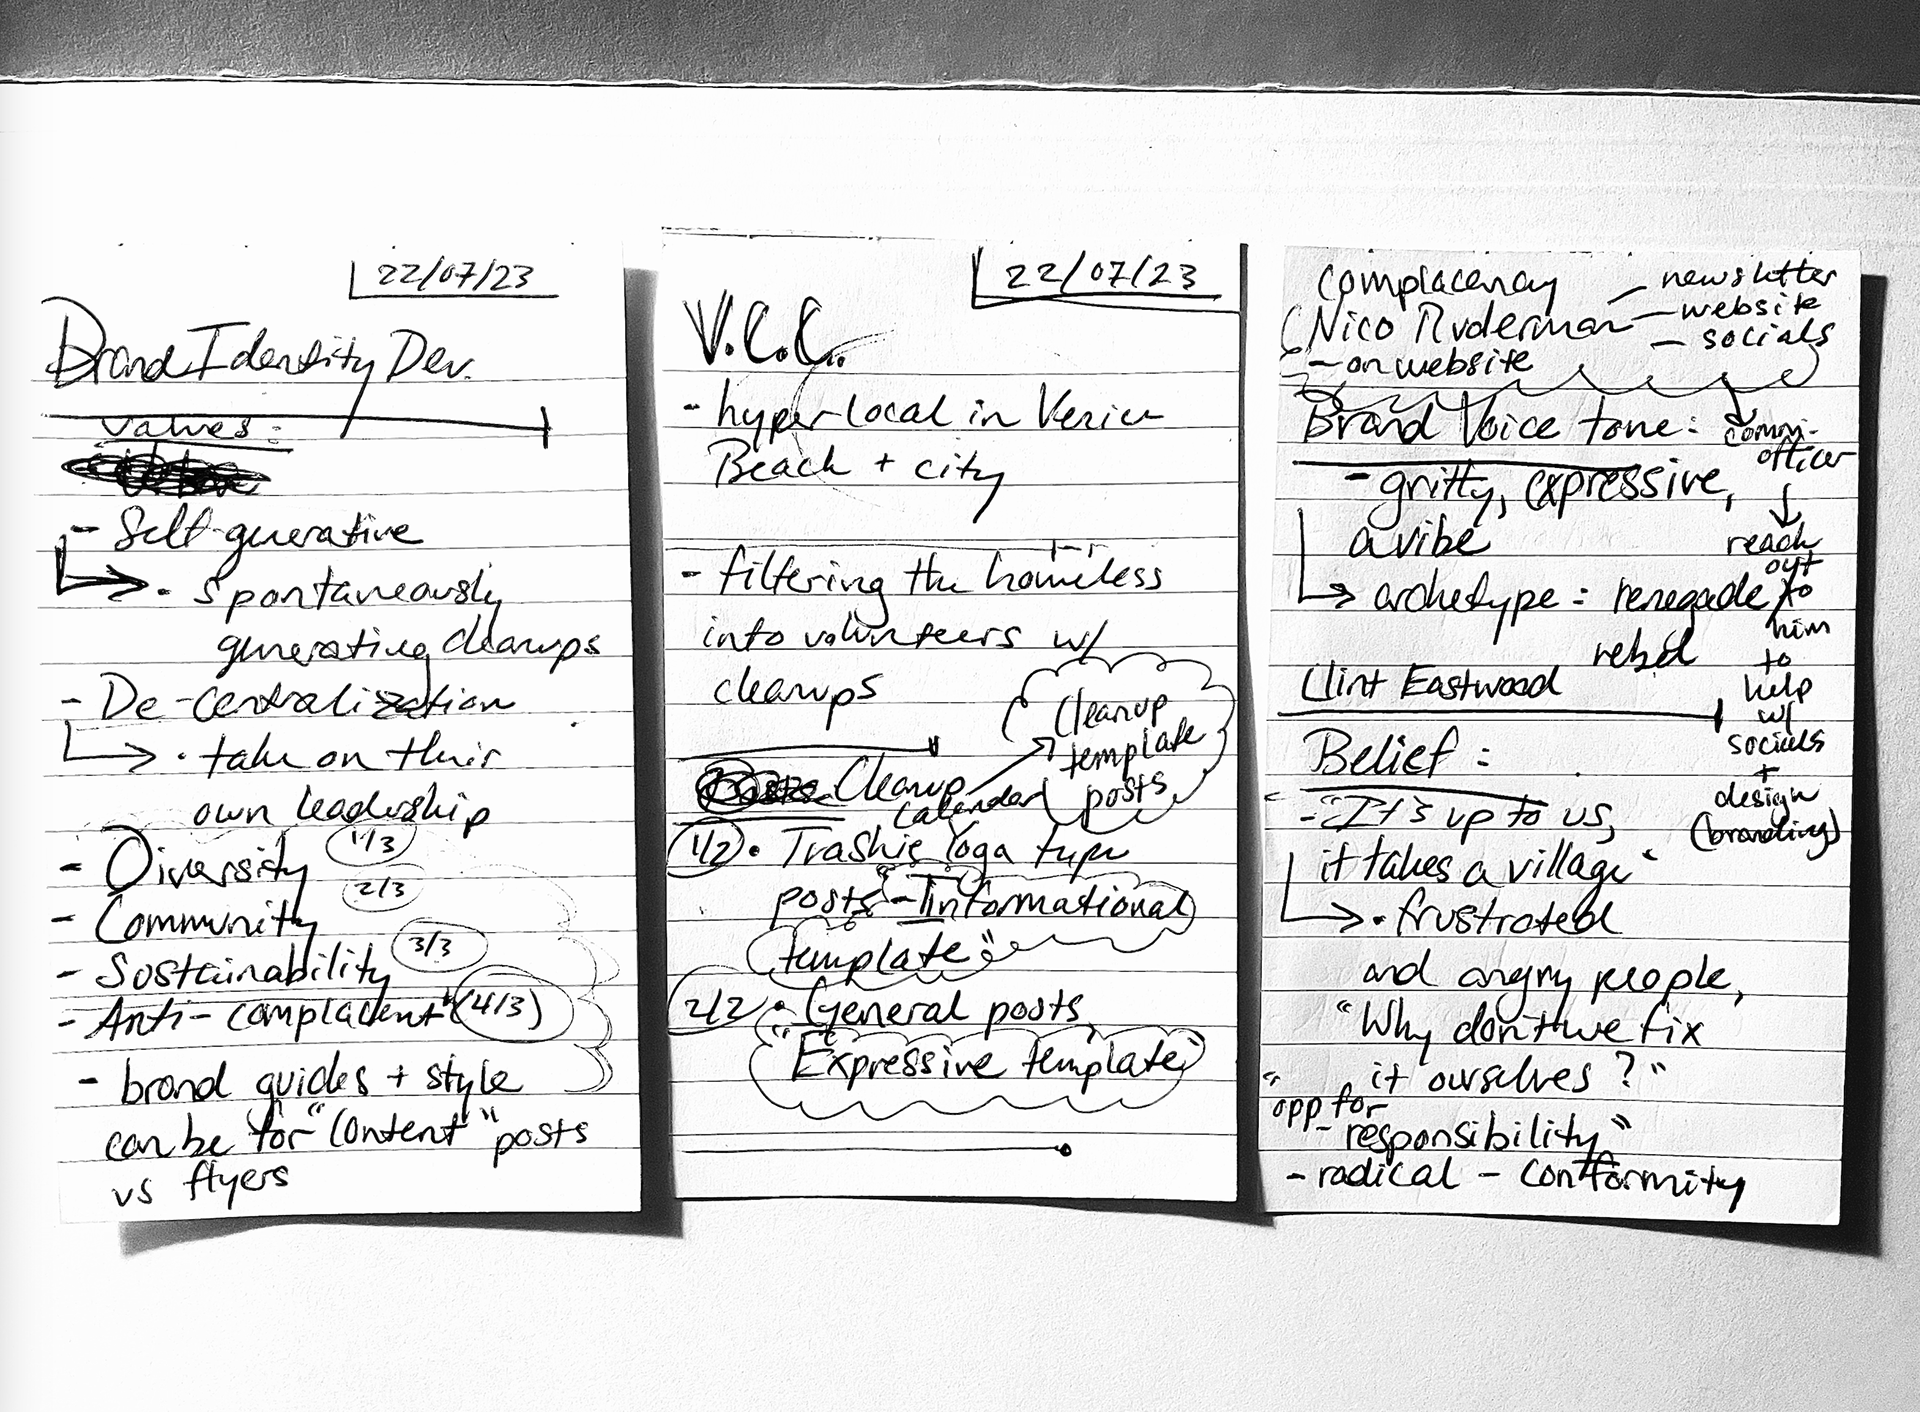 22/07/23
Brand Identity Dev.
values:
- Self-generative
• spontaneously
generating cleanups
- De-centralization
• take on their
own leadership
- Diversity 1/3
- Community 2/3
- Sustainability 3/3
- Anti-complacent* (4/3)
- brand guides + style
can be for "content" posts
vs flyers
22/07/23
V.C.C.
- hyper local in Venice
Beach + city
- filtering the homeless
into volunteers w/
cleanups
Cleanup
calendar
Cleanup
template
posts
1/2 • Trashie Yoga type
posts - "Informational
template"
2/2 • General posts,
"Expressive template"
complacency
(Nico Ruderman
- on website
- newsletter
- website
- socials
Brand Voice tone:
- gritty, expressive,
a vibe
archetype: renegade/
rebel
Clint Eastwood
comm.
officer
reach
out
to
him
to
help
w/
socials
+
design
(branding)
Belief:
- "It's up to us,
it takes a village"
• frustrated
and angry people,
"Why don't we fix
it ourselves?"
"opp for
responsibility"
- radical - conformity